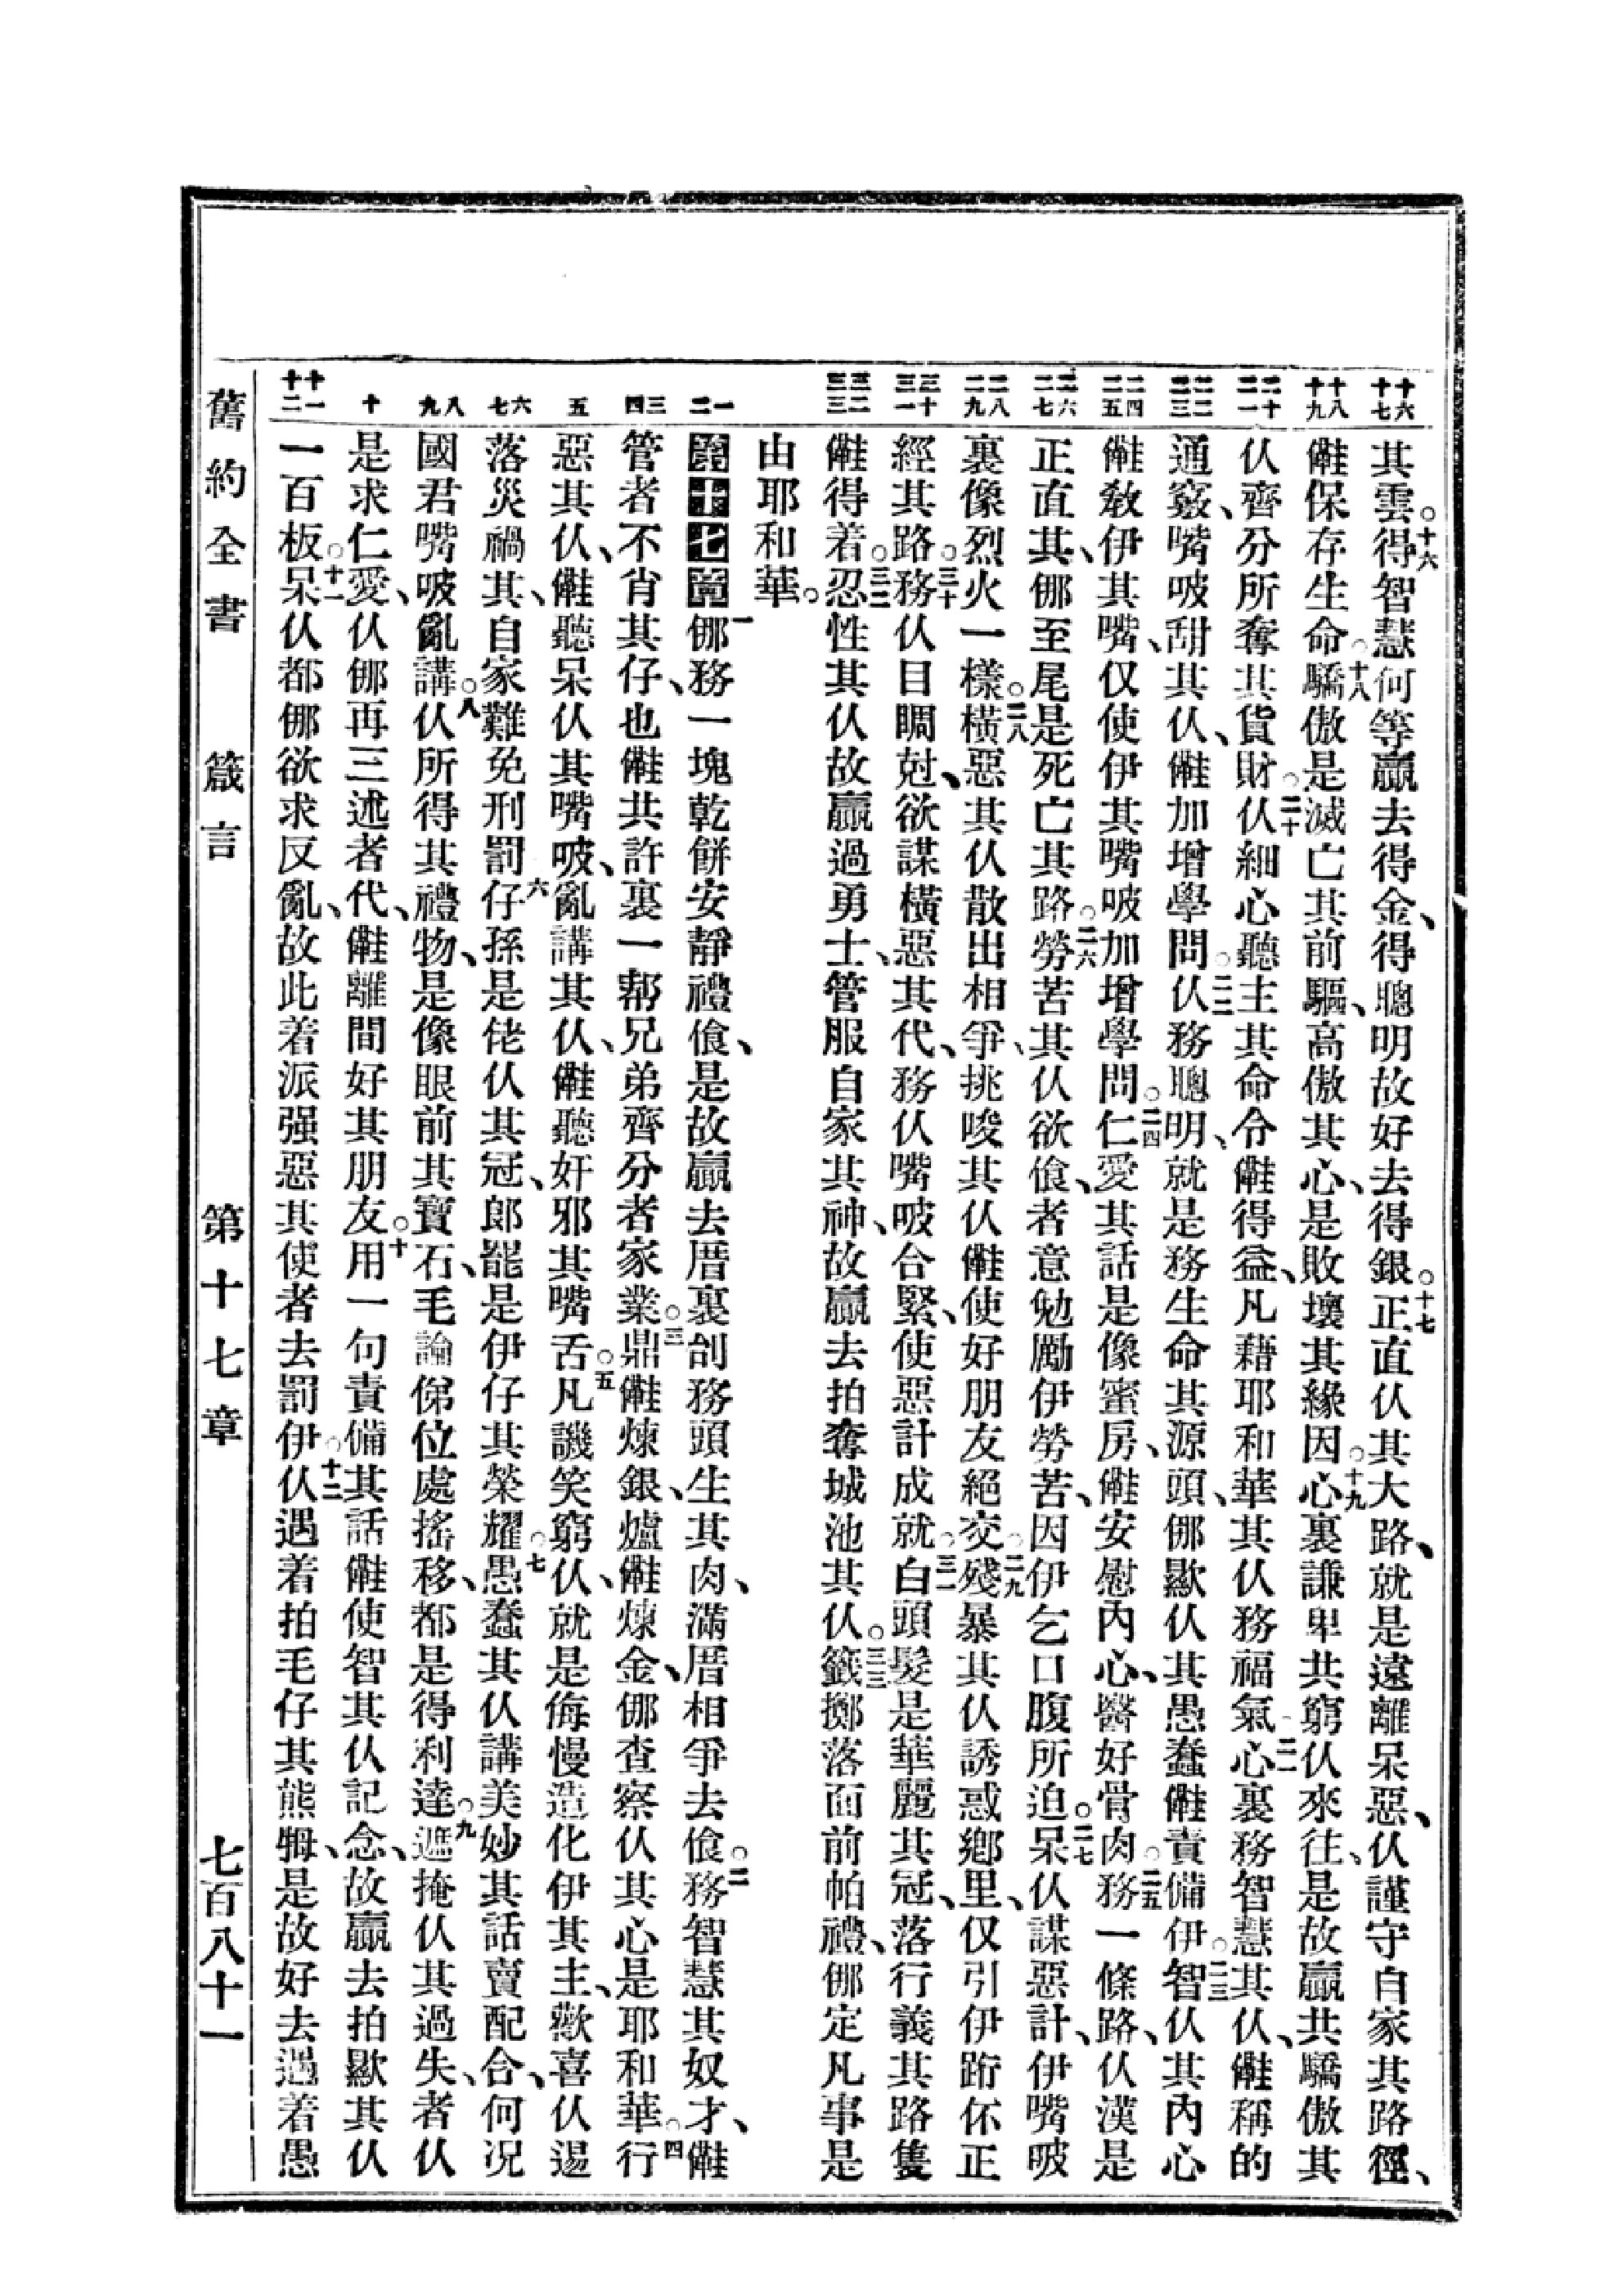 其雲。十六得智慧何等贏去得金、得聰明故好去得銀。十七正直仈其大路、就是遠離呆惡、仈謹守自家其路徑、
𠆧保存生命。十八驕傲是滅亡其前驅、高傲其心、是敗壞其緣因。十九心裏謙卑共窮仈來往、是故贏共驕傲其
仈、齊分所奪其貨財。二十仈細心聽主其命令𠆧得益、凡藉耶和華其仈務福氣。二一心裏務智慧其仈、𠆧稱的
通竅、嘴㕰甜其仈、𠆧加增學問。二二仈務聰明、就是務生命其源頭、㑚歟仈其愚蠢𠆧責備伊。二三智仈其內心
𠆧敎伊其嘴、仅使伊其嘴㕰加增學問。二四仁愛其話是像蜜房、𠆧安慰內心、醫好骨肉。二五務一條路、仈漢是
正直其、㑚至尾是死亡其路。二六勞苦其仈欲飡、者意勉勵伊勞苦、因伊乞口腹所迫。二七呆仈謀惡計、伊嘴㕰
裏像烈火一樣。二八橫惡其仈散出相爭、挑唆其仈𠆧使好朋友絕交。二九殘暴其仈誘惑鄉里、仅引伊跡伓正
經其路。三十務仈目睭尅、欲謀橫惡其代、務仈嘴㕰合緊、使惡計成就。三一白頭髮是華麗其冠、落行義其路隻
𠆧得着。三二忍性其仈故贏過勇士、管服自家其神、故贏去拍奪城池其仈。三三籤擲落面前帕禮、㑚定凡事是
由耶和華。
第十七章 一㑚務一塊乾餅安靜禮飡、是故贏去厝裏刣務頭生其肉、滿厝相爭去飡。二務智慧其奴才、𠆧
管者不肖其仔、也𠆧共許裏一幫兄弟齊分者家業。三鼎𠆧煉銀、爐𠆧煉金、㑚查察仈其心是耶和華。四行
惡其仈、𠆧聽呆仈其嘴㕰、亂講其仈、𠆧聽奸邪其嘴舌。五凡譏笑窮仈、就是侮慢造化伊其主、歡喜仈逿
落災禍其、自家難免刑罰。六仔孫是佬仈其冠、郎罷是伊仔其榮耀。七愚蠢其仈講美妙其話賣配合、何况
國君嘴㕰亂講。八仈所得其禮物、是像眼前其寶石、毛論俤位處搖移、都是得利達。九遮掩仈其過失、者仈
是求仁愛、仈㑚再三述者代、𠆧離間好其朋友。十用一句責備其話𠆧使智其仈記念、故贏去拍歟其仈
一百板。十一呆仈都㑚欲求反亂、故此着派强惡其使者去罰伊。十二仈遇着拍毛仔其熊㛂、是故好去遇着愚
十六
十七
十八
十九
二十
二一
二二
二三
二四
二五
二六
二七
二八
二九
三十
三一
三二
三三
一
二
三
四
五
六
七
八
九
十
十一
十二
舊約全書 箴言 第十七章 七百八十一